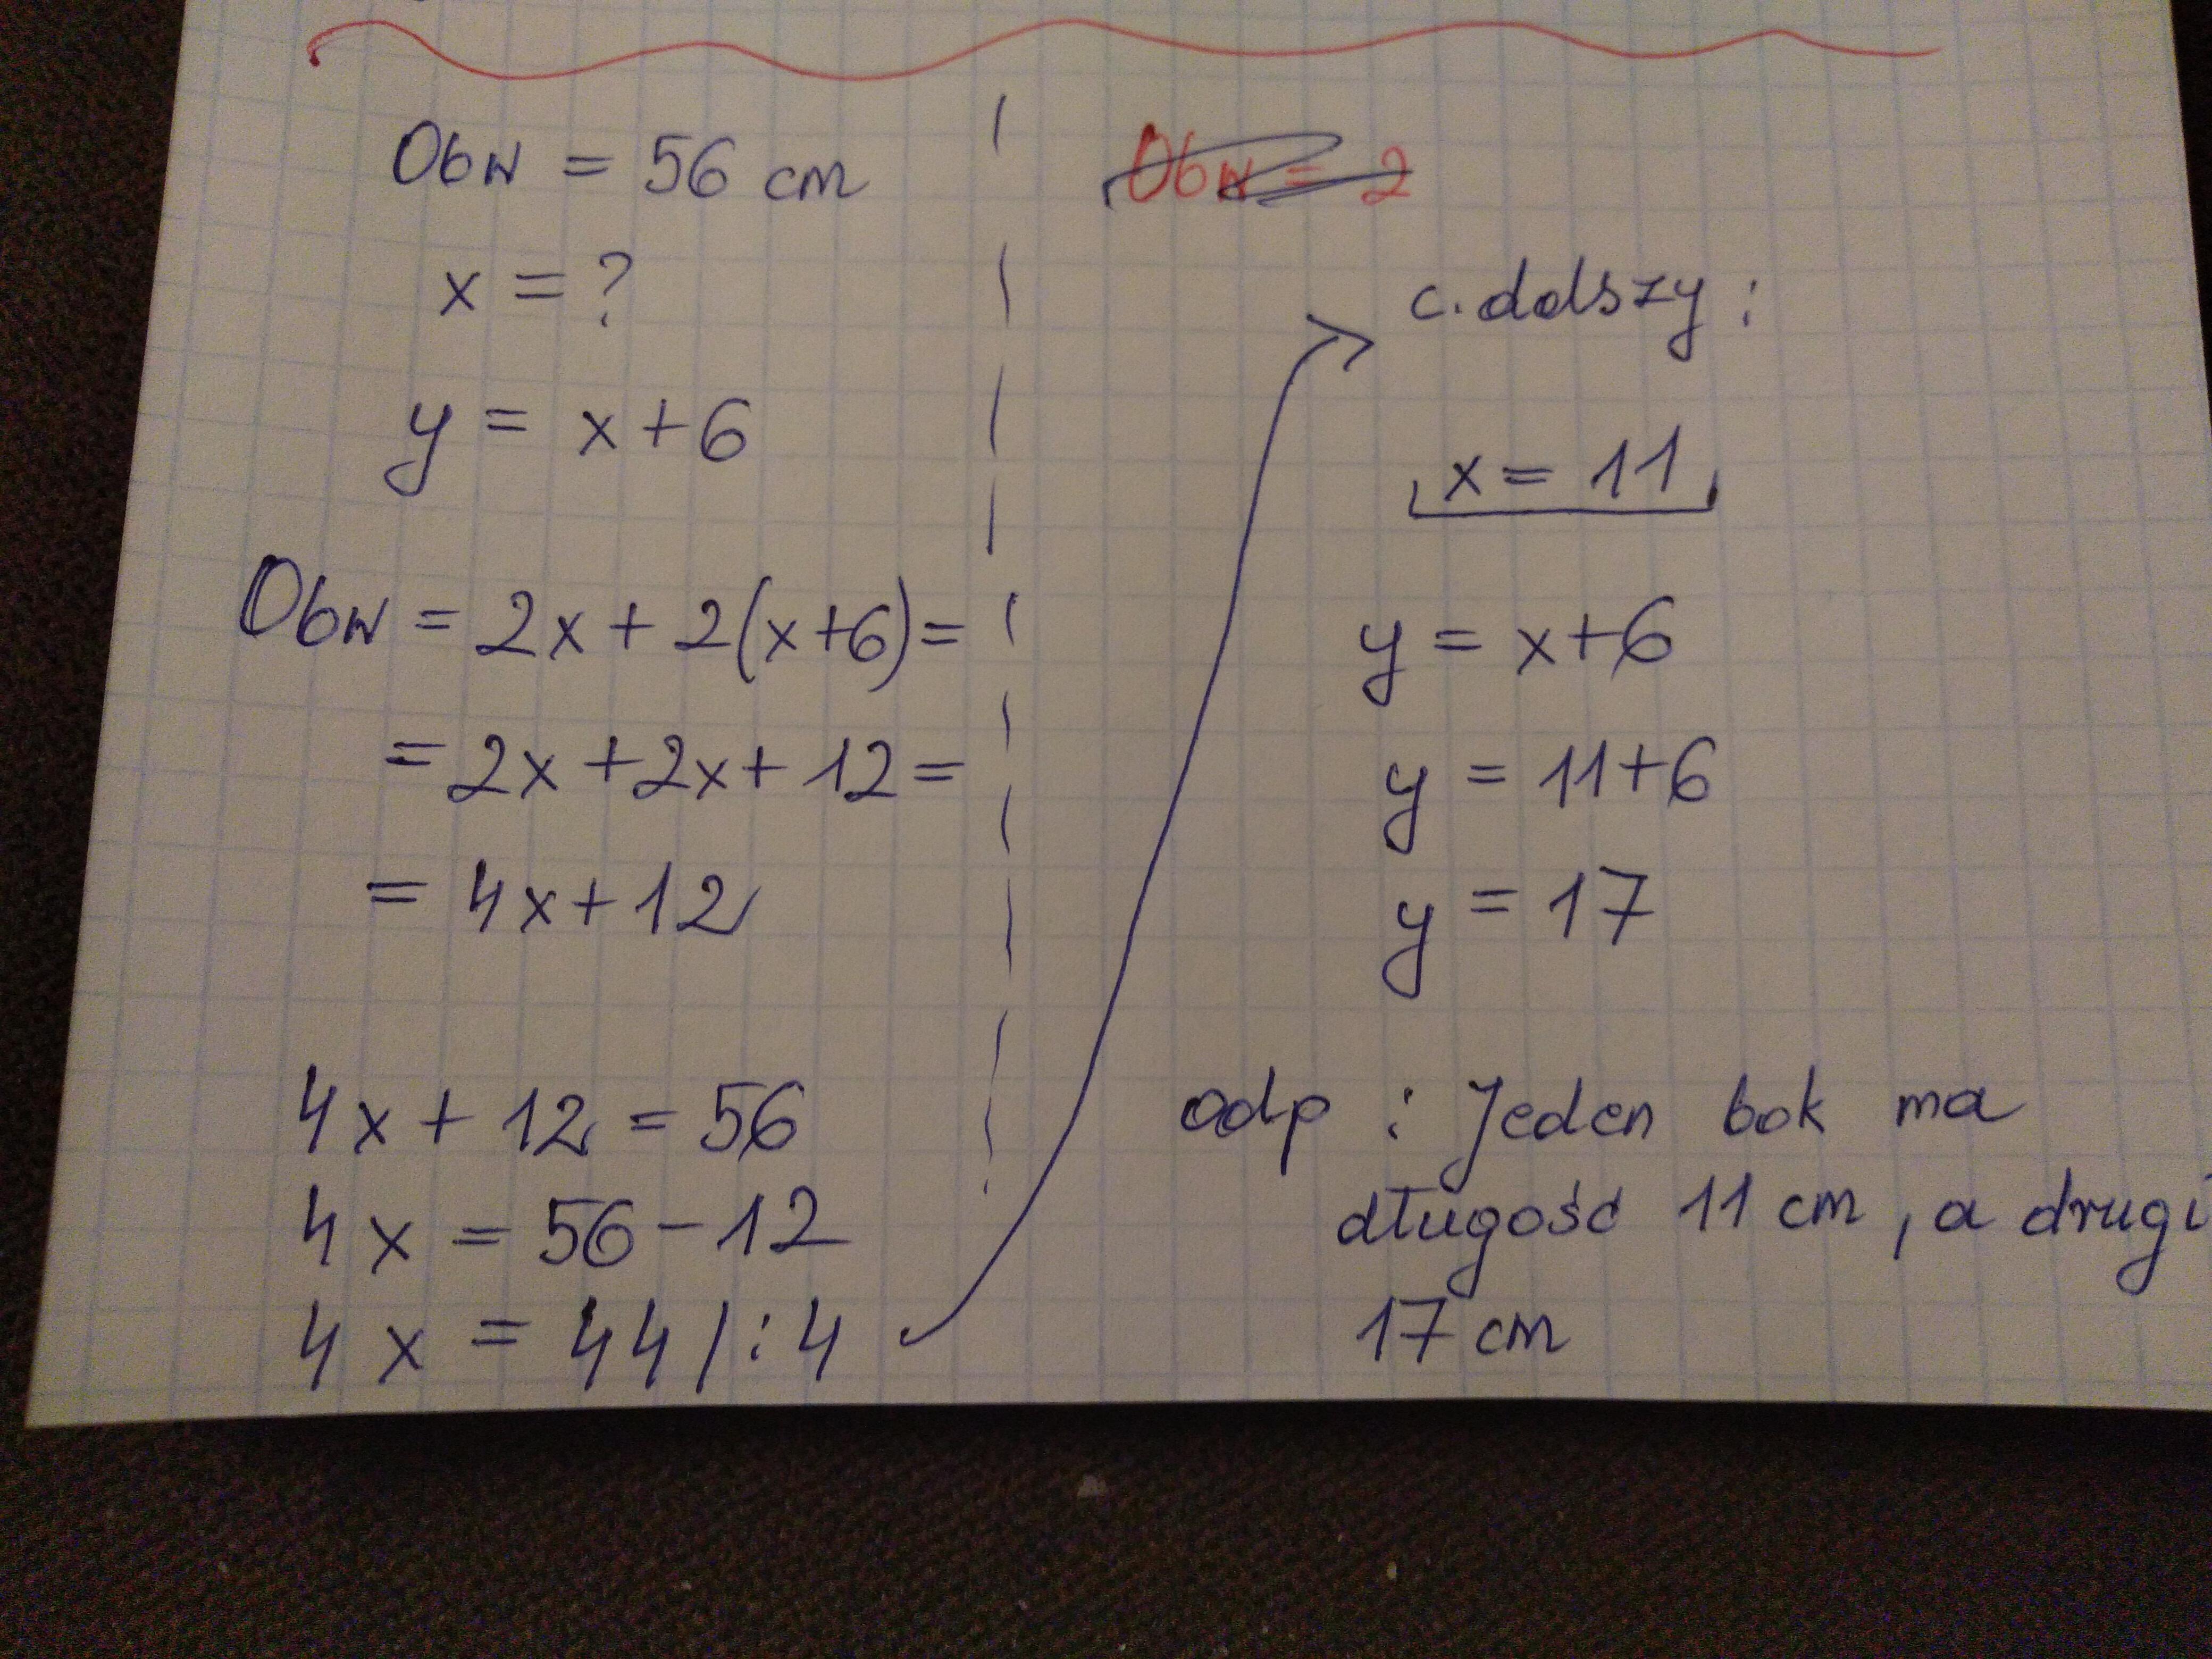 Obw = 56 cm
x = ?
y = x+6
Obw = 2x + 2(x+6) =
= 2x + 2x + 12 =
= 4x + 12
4x + 12 = 56
4x = 56 - 12
4x = 44 /:4
Obw = 2
c. dalszy :
x = 11
y = x+6
y = 11+6
y = 17
odp : Jeden bok ma
długość 11 cm, a drugi
17 cm